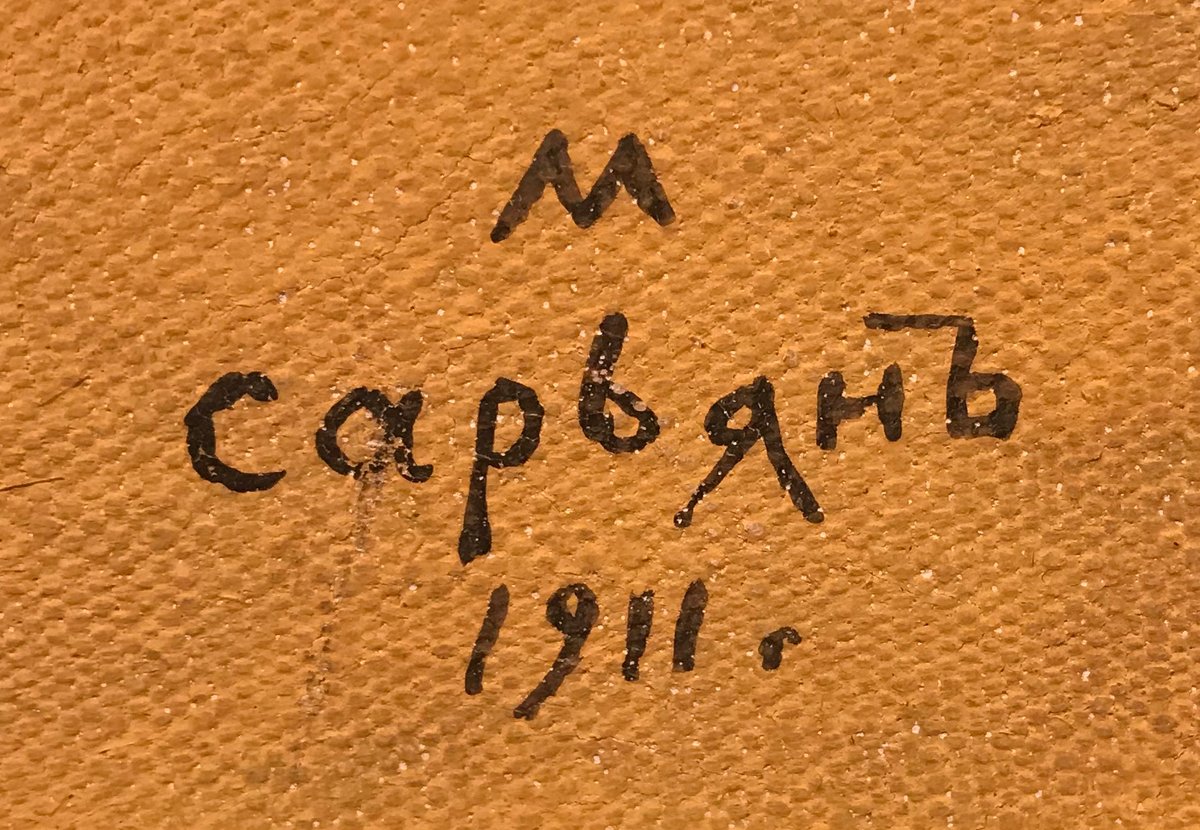 М
сарьянъ
1911 г